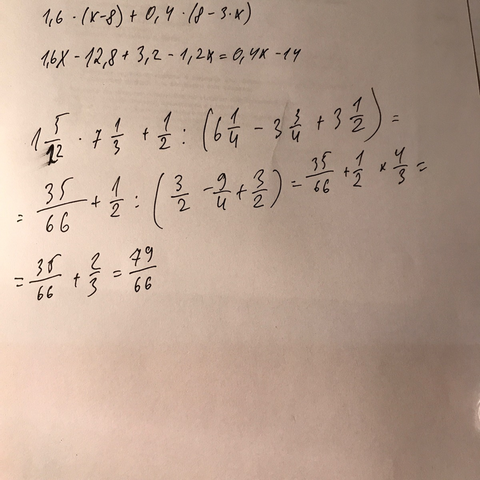 1,6 · (x-8) + 0,4 · (8-3·x)
1,6x - 12,8 + 3,2 - 1,2x = 0,4x - 14
1 5/12 · 7 1/3 + 1/2 : (6 1/4 - 3 3/4 + 3 1/2) =
= 35/66 + 1/2 : (3/2 - 9/4 + 3/2) = 35/66 + 1/2 × 4/3 =
= 35/66 + 2/3 = 79/66